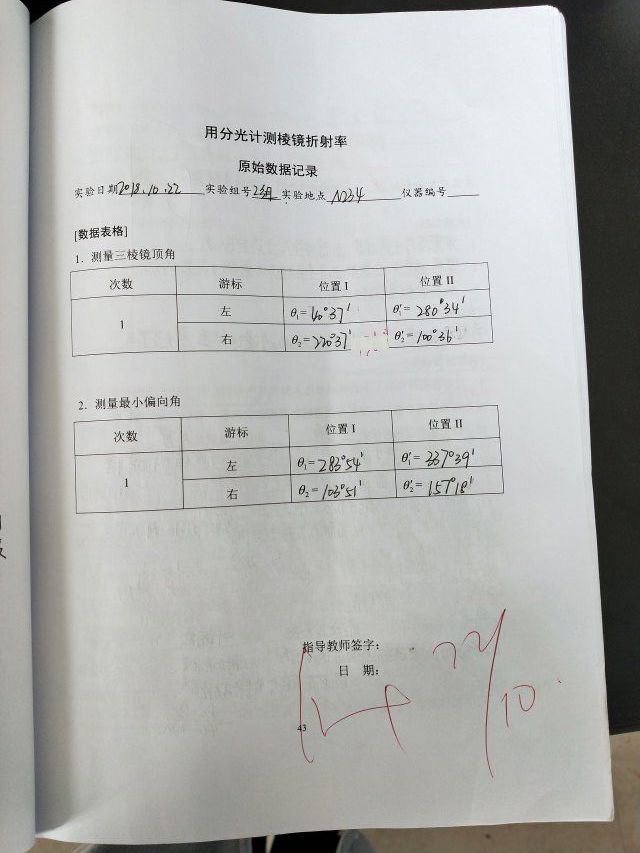 用分光计测棱镜折射率
原始数据记录
实验日期2018.10.22 实验组号2组 实验地点 N234 仪器编号
[数据表格]
1. 测量三棱镜顶角
次数 游标 位置 I 位置 II
1 左 θ₁= 40°37′ θ₁′= 280°34′
右 θ₂= 220°37′ θ₂′= 100°36′
2. 测量最小偏向角
次数 游标 位置 I 位置 II
1 左 θ₁= 283°54′ θ₁′= 337°39′
右 θ₂= 103°51′ θ₂′= 157°18′
指导教师签字:
日 期:
22/10
43